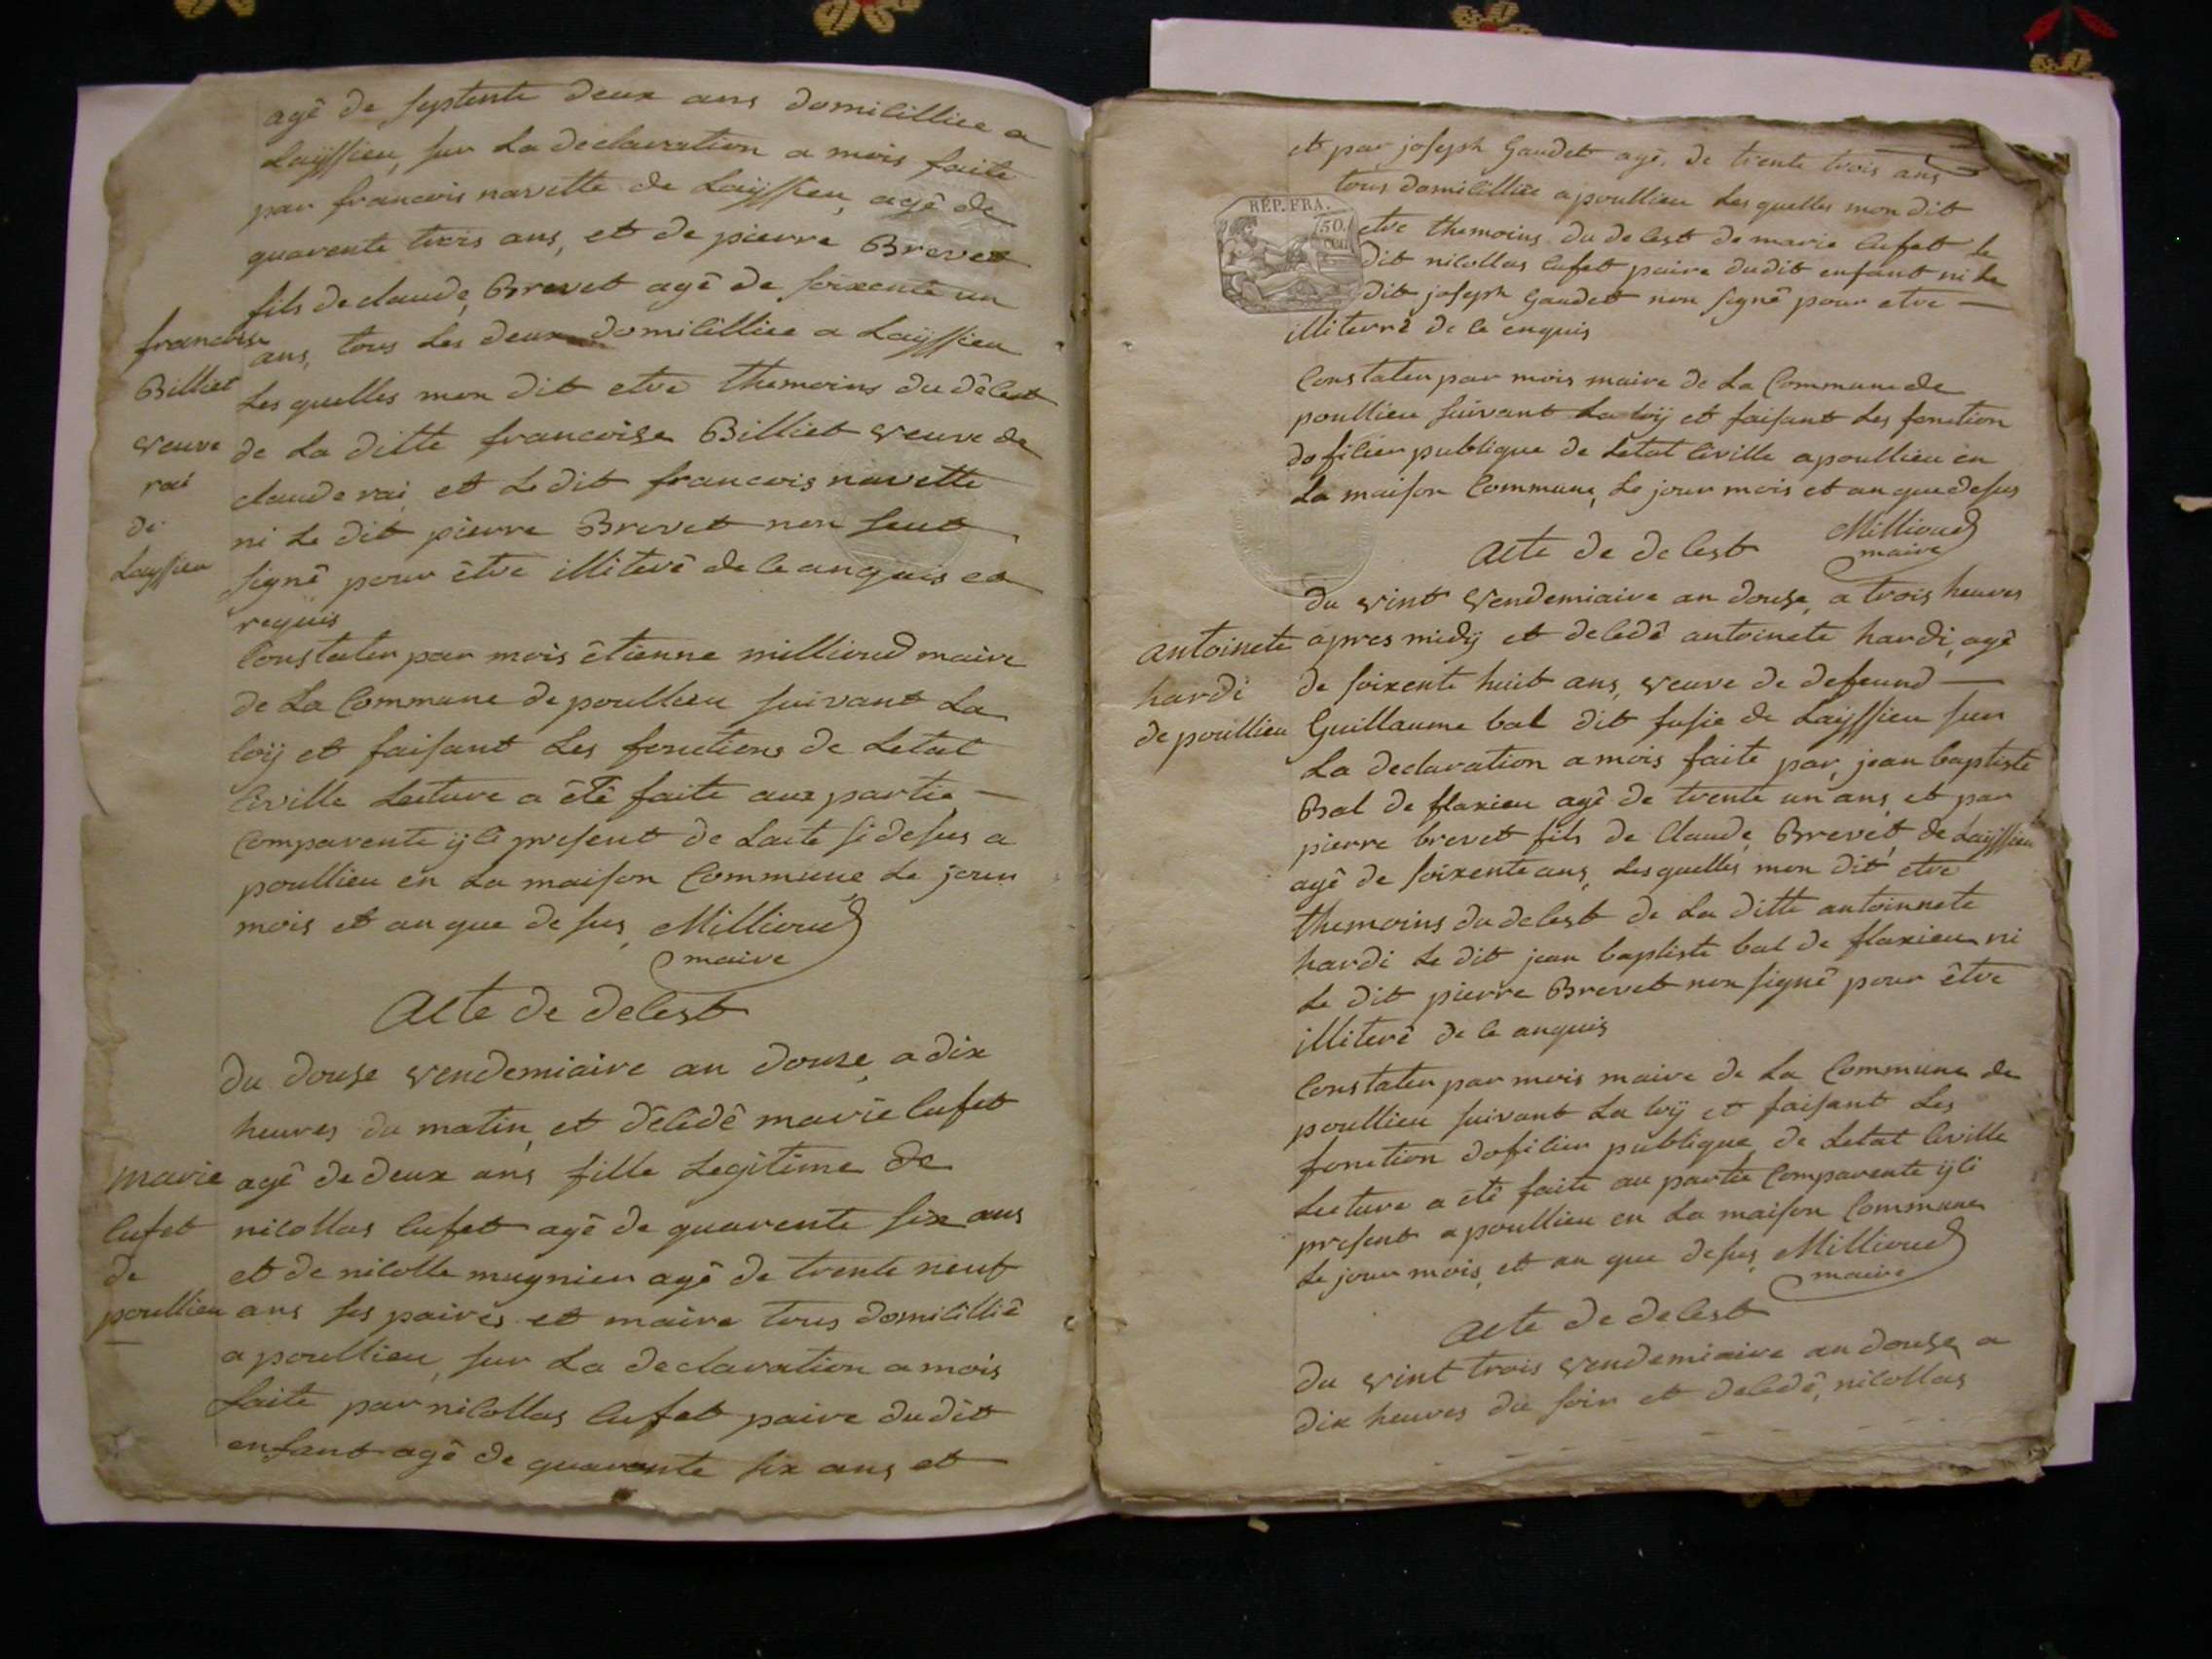 agê de septente deux ans domicillié a
Laÿssieu, sur La declaration a mois faite
par francois navette de Laÿssieu, agê de
quarente trois ans, et de pierre Brevet
fils de claude, Brevet agê de soixente un
ans, tous Les deux domicilliée a Laÿssieu
Les quelles mon dit etre themoins du dêcest
de La ditte francoise Billiet veuve de
claude rai, et Le dit francois navette
ni Le dit pierre Brevet non seut
signê pour être illiterê de ce anquis et
requis
francoise
Billiet
veuve
rai
de
Layssieu
Constater par mois êtienne millioud maire
de La Commune de poullieu suivant La
loÿ et faisant Les fonctions de Letat
Civille Lecture a êtê faite aux partie
Comparente ÿci present de Lacte si desus a
poullieu en La maison Commune Le jour
mois et an que de sus, Millioud
maire
Acte de decest
Du douse vendemiaire an douze, a dix
heures du matin, et dêcêdê marie cufet
agê de deux ans fille Legitime de
nicollas cufet agê de quarente six ans
et de nicolle mugnier agê de trente neuf
ans ses paires et maire tous domicilliê
a poullieu, sur La declaration a mois
faite par nicollas cufet paire dudit
enfant agê de quarante six ans et
marie
cufet
de
poullieu
et par joseph Gaudet agê, de trente trois ans
tous domicilliée a poullieu Les quelles mon dit
etre themoins du decest de marie cufet Le
dit nicollas cufet paire dudit enfant ni Le
dit joseph Gaudet non signê pour etre
illiterrê de ce enquis
RÉP. FRA.
50.
CEN.
Constater par mois maire de La Commune de
poullieu suivant La loÿ et faisant Les fonction
doficier publique de Letat Civille a poullieu en
La maison Commune, Le jour mois et an que desus
Millioud
maire
Acte de decest
Du vint vendemiaire an douse, a trois heures
apres midÿ et decedê antoinete hardi, agê
de soixente huit ans, veuve de defeund
Guillaume bal dit fusie de Laÿssieu sur
La declaration a mois faite par, jean baptiste
Bal de flaxieu agê de trente un ans, et par
pierre brevet fils de Claude, Brevet, de Laÿssieu
agê de soixente ans, Les quelles mon dit etre
themoins du decest de La ditte antoinnete
hardi Le dit jean baptiste bal de flaxieu ni
Le dit pierre Brevet non signê pour être
illiterê de ce anquis
antoinete
hardi
de poullieu
Constater par mois maire de La Commune de
poullieu suivant La loÿ et faisant Les
fonction doficier publique de Letat Civille
Lecture a êtê faite au partie Comparente ÿci
present a poullieu en La maison Commune
Le jour mois, et an que desus, Millioud
maire
Acte de decest
Du vint trois vendemiaire an douse, a
dix heures du soir et decedê, nicollas